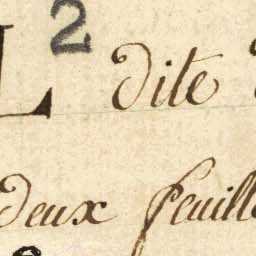 L 2 dite
deux feuill